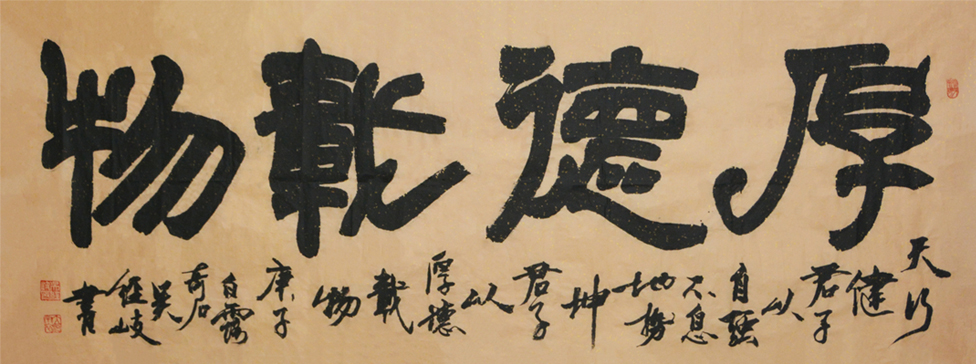 厚德載物
天行
健
君子
以
自強
不息
地勢
坤
君子
以
厚德
載
物
庚子
白露
奇石
吴
書